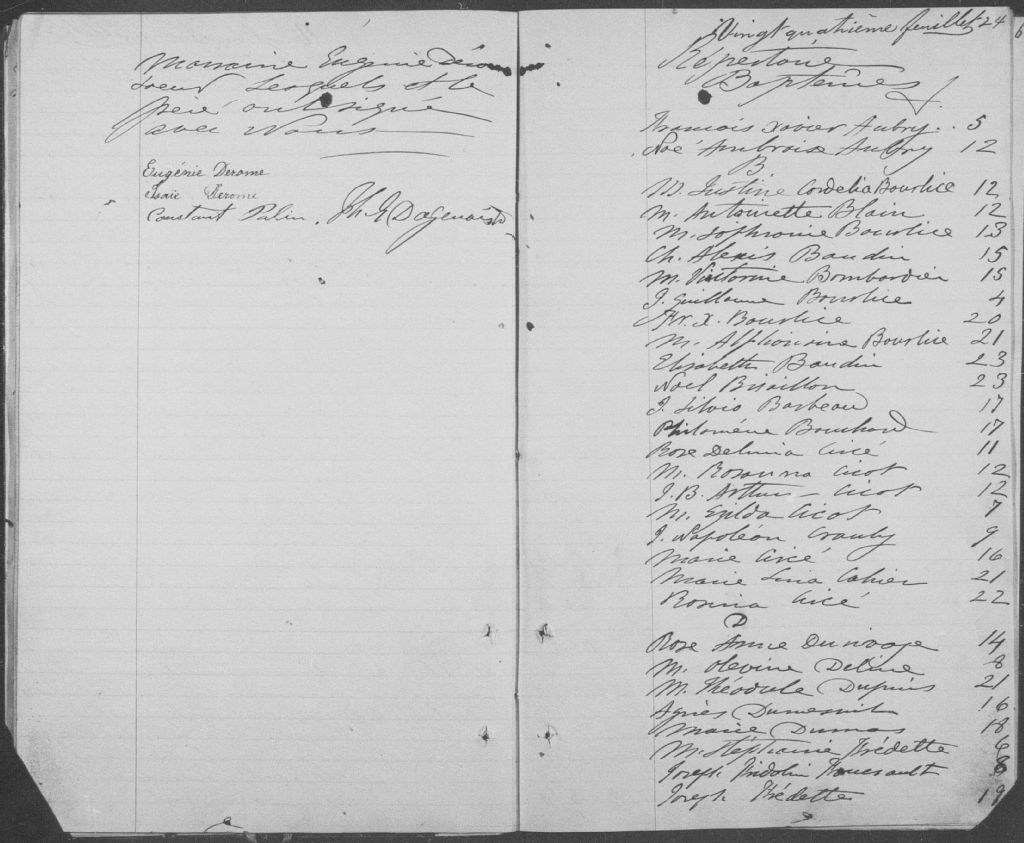 Marraine Eugénie Derome
soeur lesquels et le
père ont signé
avec Nous
Eugénie Derome
Isaïe Derome
Constant Palin. Jh. G Dagenais Ptre
Vingt quatrième feuillet 24
Répertoire
Baptêmes
François Xavier Aubry.. 5
Noé Ambroise Aubry 12
B
M. Justine Cordelia Bourlice 12
M. Antoinette Blain 12
M. Sophronie Bourlice 13
Ch. Alexis Baudin 15
M. Victorine Bombardier 15
J. Guillaume Bourlice 4
Fr. X. Bourlice 20
M. Alphonsine Bourlice 21
Elisabeth Baudin 23
Noël Bisaillon 23
J. Silvio Barbeau 17
Philomène Bouchard 17
Rose Delima Circé 11
M. Rosanna Cicot 12
J. B. Arthur - Cicot 12
M. Exilda Cicot 7
J. Napoléon 9
Marie Circé 16
Marie Lina Cahier 21
Rosina Circé 22
D
Rose Anne Durivage 14
M. Olevine Deline 8
M. Théodule Dupuis 21
Agnès Dumesnil 16
Marie Dumas 18
M. Stéphanie Frédette 6
Joseph 8
Joseph Frédette 19